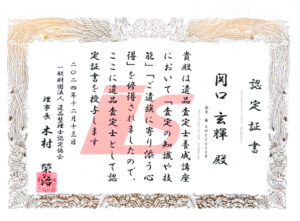 認定証書
関口玄輝 殿
貴殿は遺品査定士養成講座
において「査定の知識や技
能」「ご遺族に寄り添う心
得」を修得されましたので、
ここに遺品査定士として認
定証書を授与します
二〇二四年十二月十三日
一般財団法人 遺品整理士認定協会
理事長 木村 榮治